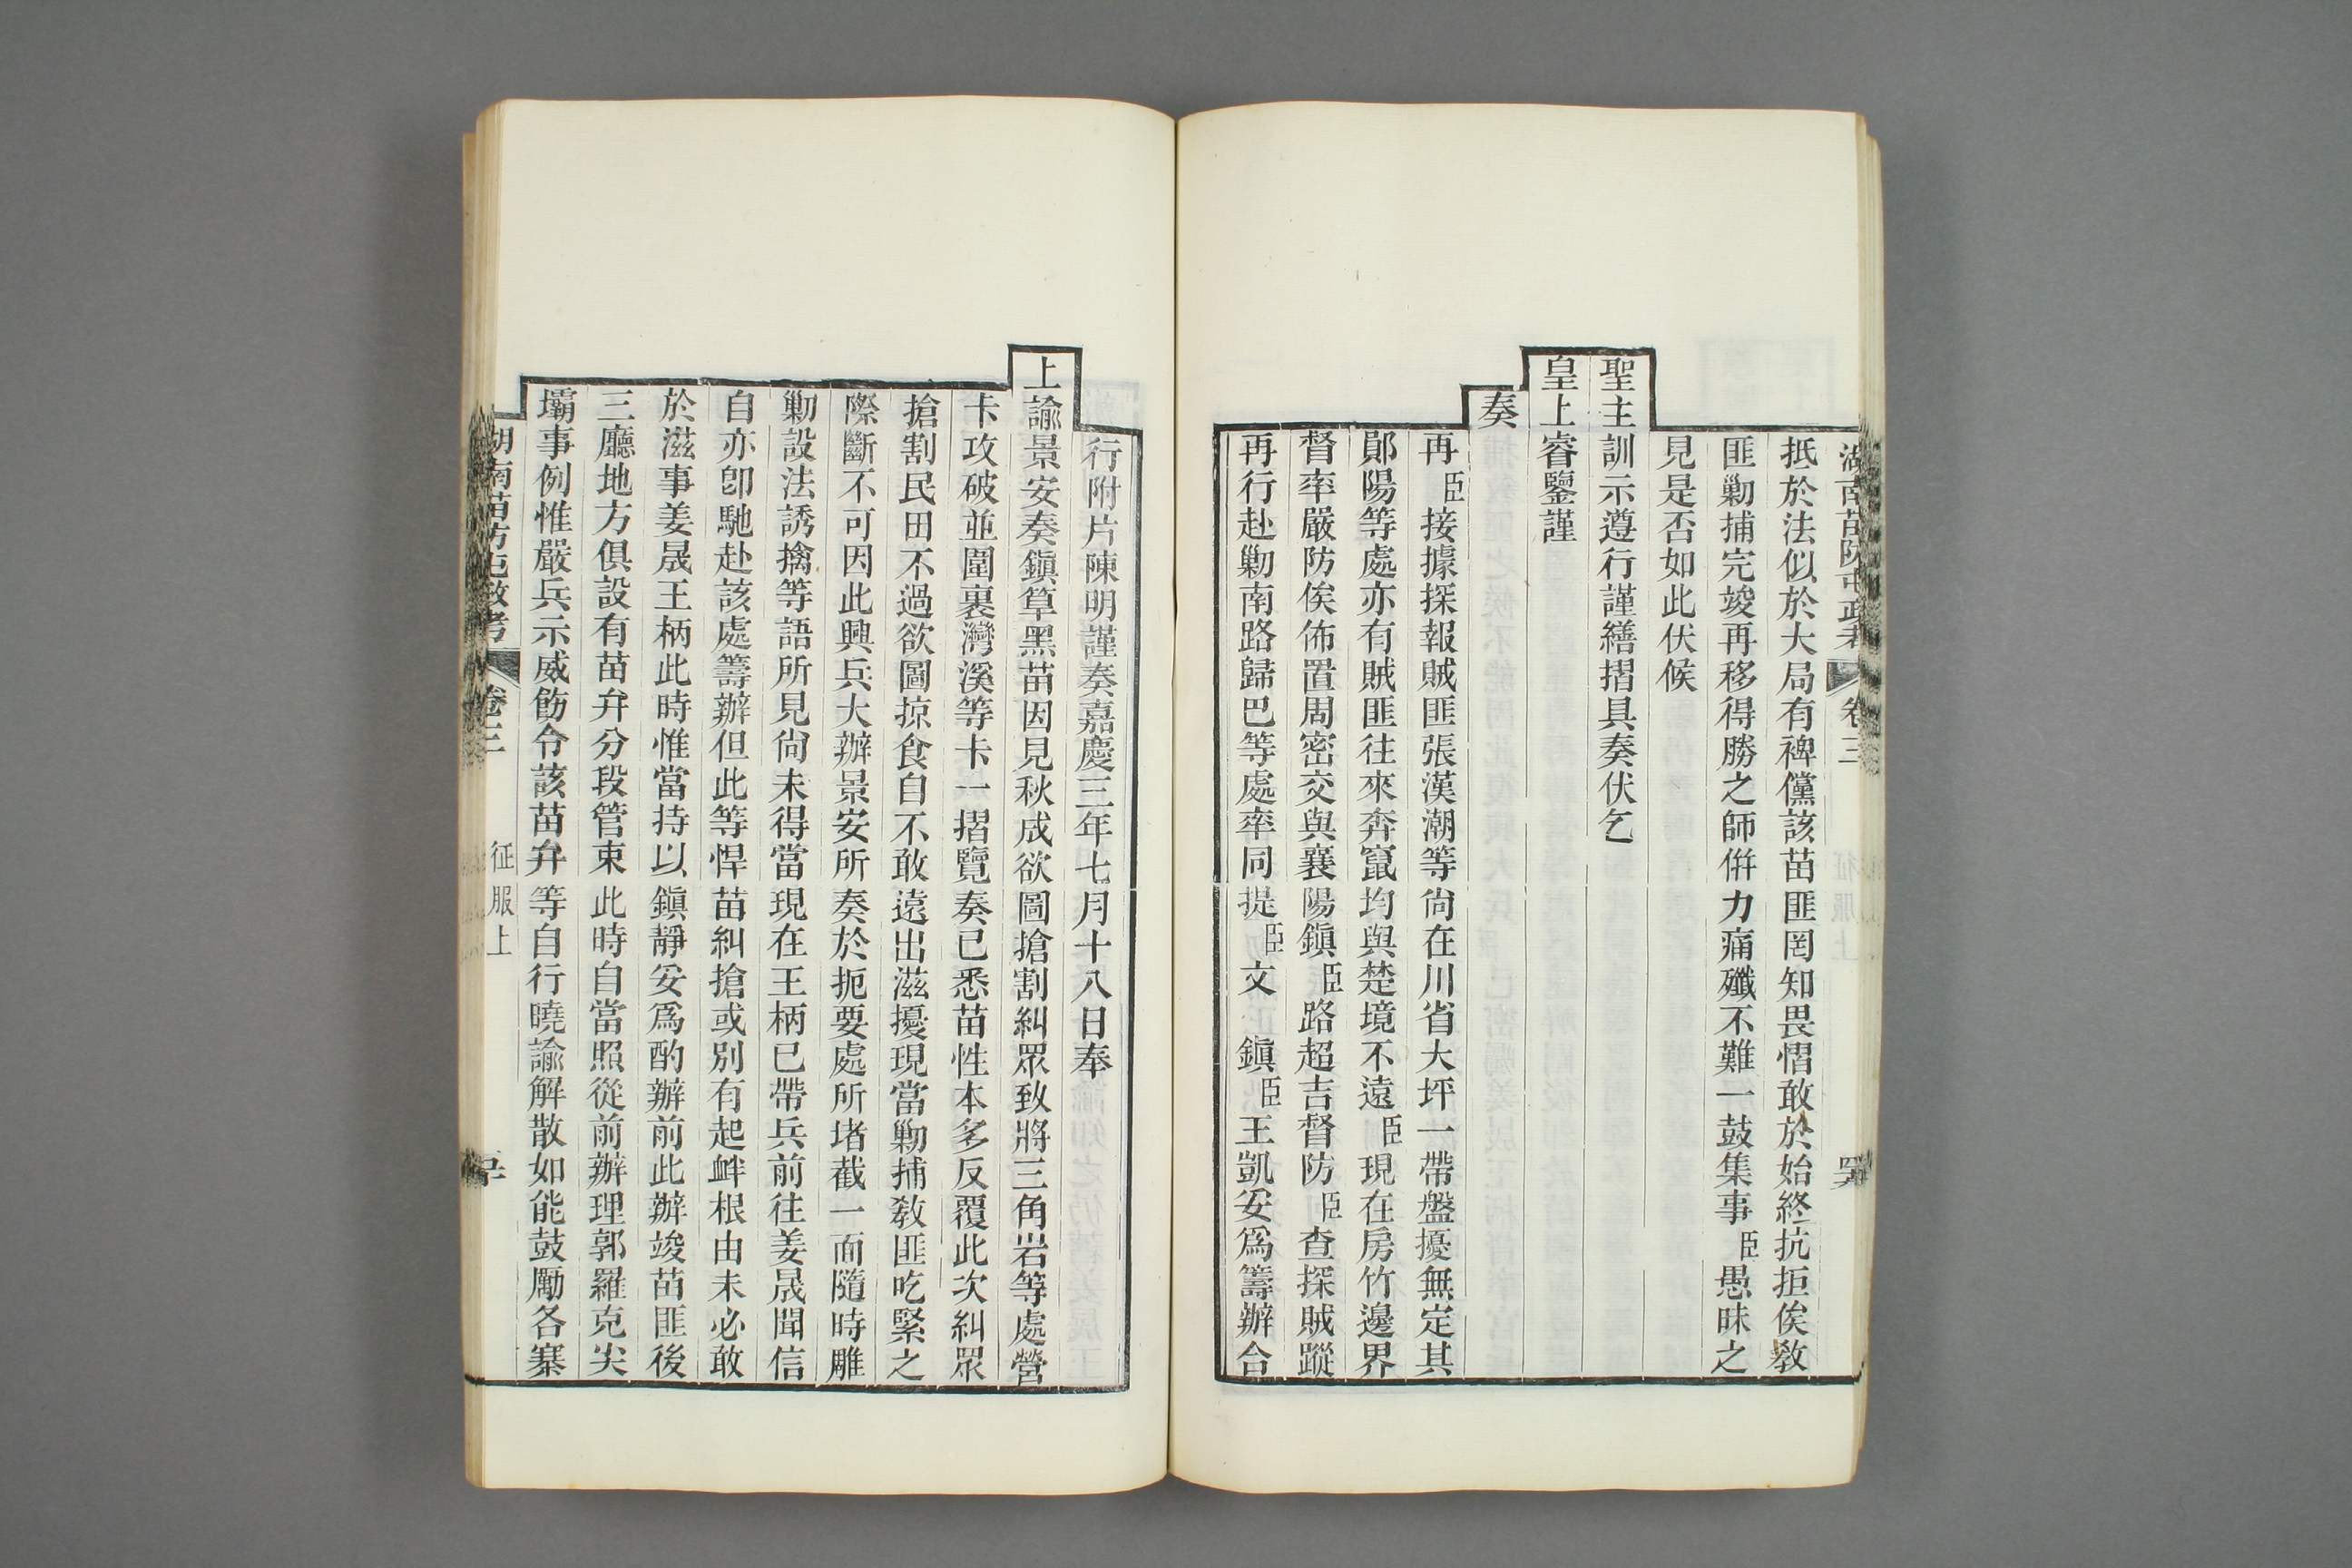 湖南苗防屯政考 卷三 征服上
抵於法似於大局有裨儻該苗匪罔知畏慴敢於始終抗拒俟敎
匪勦捕完竣再移得勝之師倂力痛殲不難一鼓集事臣愚昧之
見是否如此伏候
聖主訓示遵行謹繕摺具奏伏乞
皇上睿鑒謹
奏
再臣接據探報賊匪張漢潮等尙在川省大坪一帶盤擾無定其
鄖陽等處亦有賊匪往來奔竄均與楚境不遠臣現在房竹邊界
督率嚴防俟佈置周密交與襄陽鎭臣路超吉督防臣查探賊蹤
再行赴勦南路歸巴等處率同提臣文 鎭臣王凱妥爲籌辦合
行附片陳明謹奏嘉慶三年七月十八日奉
上諭景安奏鎭筸黑苗因見秋成欲圖搶割糾眾致將三角岩等處營
卡攻破並圍裹灣溪等卡一摺覽奏已悉苗性本多反覆此次糾眾
搶割民田不過欲圖掠食自不敢遠出滋擾現當勦捕敎匪吃緊之
際斷不可因此興兵大辦景安所奏於扼要處所堵截一面隨時雕
勦設法誘擒等語所見尙未得當現在王柄已帶兵前往姜晟聞信
自亦卽馳赴該處籌辦但此等悍苗糾搶或別有起衅根由未必敢
於滋事姜晟王柄此時惟當持以鎭靜妥爲酌辦前此辦竣苗匪後
三廳地方俱設有苗弁分段管束此時自當照從前辦理郭羅克尖
壩事例惟嚴兵示威飭令該苗弁等自行曉諭解散如能鼓勵各寨
湖南苗防屯政考 卷三 征服上